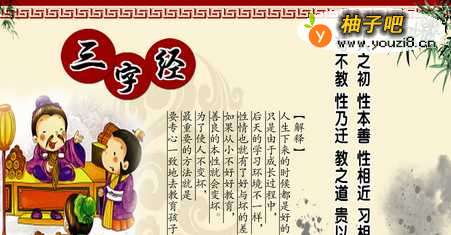 三字经
柚子吧
www.youzi8.cn
之初 性本善 性相近 习相
不教 性乃迁 教之道 贵以
【解释】
人生下来的时候都是好的
只是由于成长过程中，
后天的学习环境不一样，
性情也就有了好与坏的差
如果从小不好好教育，
善良的本性就会变坏。
为了使人不变坏，
最重要的方法就是
要专心一致地去教育孩子